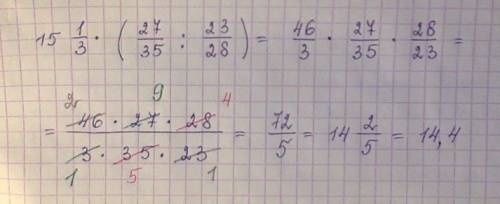 15 1/3 · (27/35 : 23/28) = 46/3 · 27/35 · 28/23 =
2 9 4
= 46 · 27 · 28 / 3 · 35 · 23 = 72/5 = 14 2/5 = 14,4
1 5 1